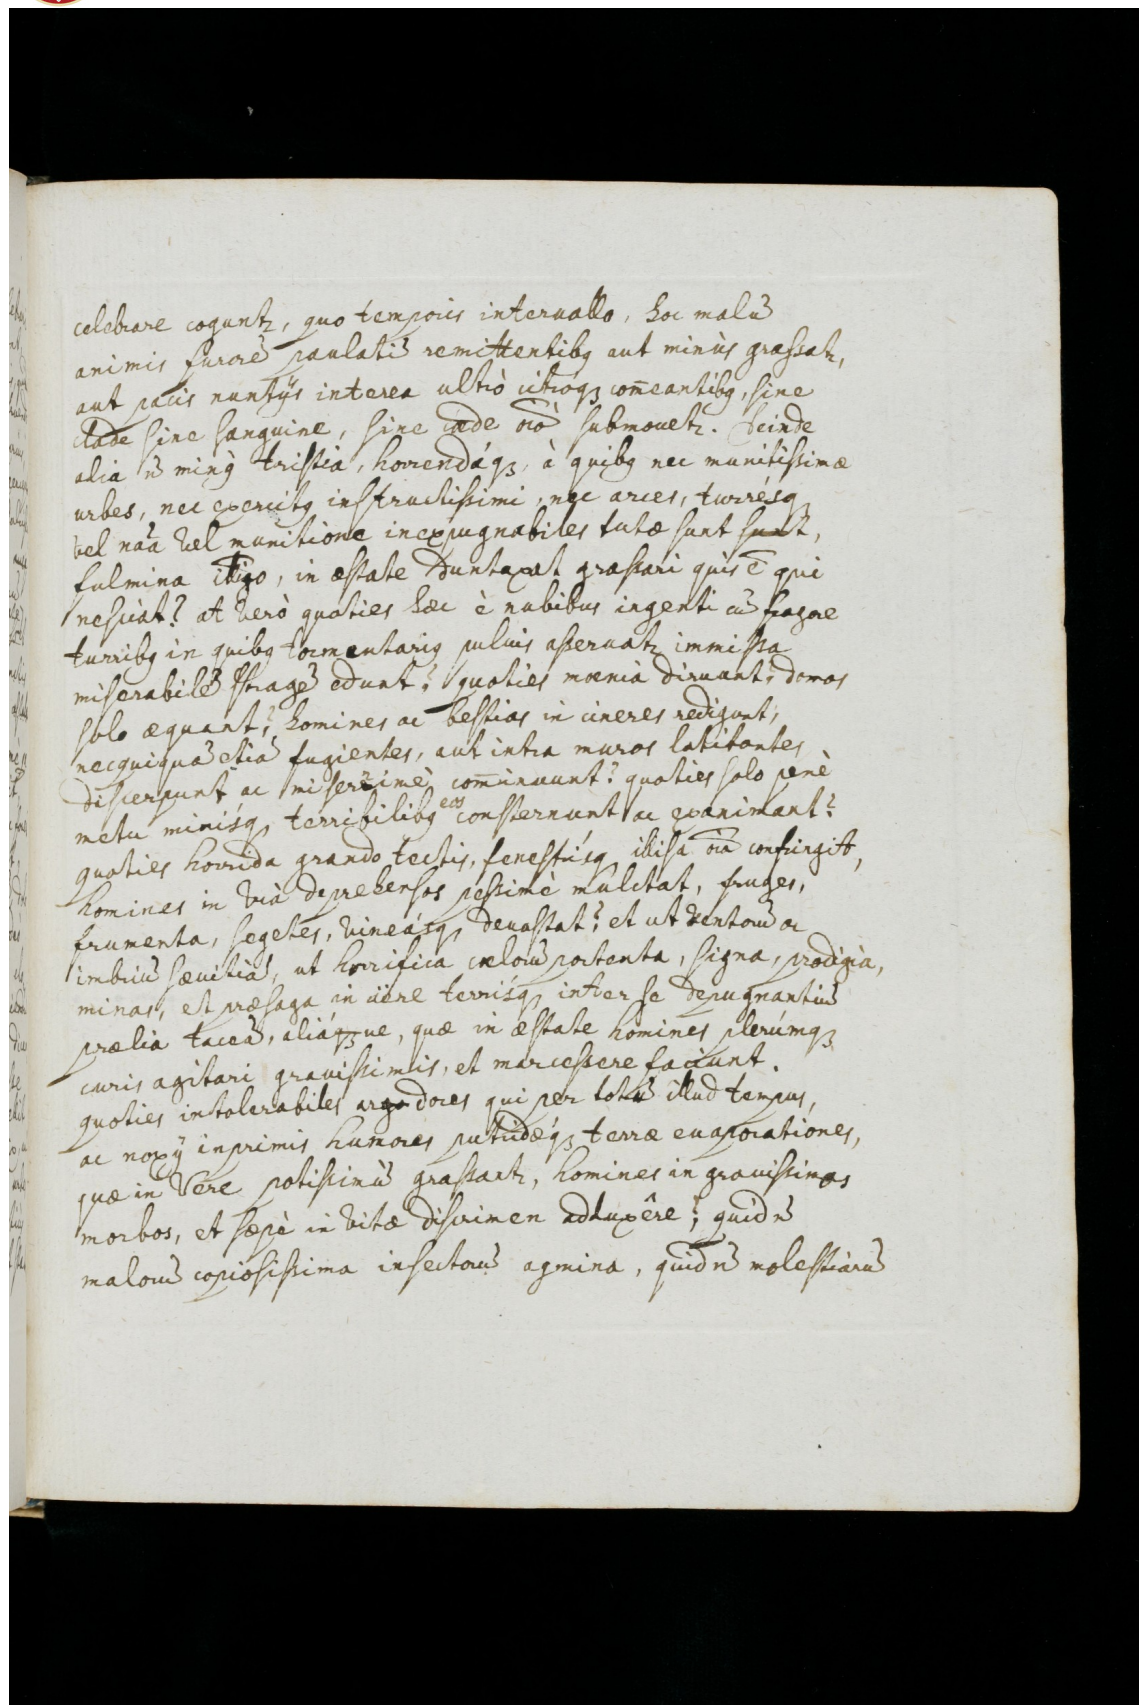 celebrare cogunt𝑟, quo temporis interuallo, hoc malū
animis furorē paulatī remittentibꝯ aut minùs grassat𝑟,
aut pacis nuntÿs interea ultrò citróqꝫ com̄eantibꝯ, sine
clade sine sanguine, sine cæde oīo submouet𝑟. Deinde
alia n̄ minꝯ tristia, horrendáqꝫ, à quibꝯ nec munitissimæ
urbes, nec exercitꝯ instructissimi, nec arces, turrésqꝫ
vel naā vel munitione inexpugnabiles tutæ sunt sunt,
fulmina itigo, in æstate duntaxat grassari quis ē qui
nesciat? at verò quoties hæc è nubibus ingenti cū fragore
turribꝯ in quibꝯ tormentariꝯ puluis asseruat𝑟 immissa
miserabilē stragē edunt? quoties mœnia diruunt? domos
solo æquant? homines ac bestias in cineres redigunt,
necquiquā etiā fugientes, aut intra muros latitantes
discerpunt ac miserrimè com̄inuunt? quoties solo penè
metu minísqꝫ terribilibꝯ eos consternunt ac exanimant?
quoties horrida grando tectis, fenestrísqꝫ illisa oīa confringit,
homines in viâ deprehensos pessimè mulctat, fruges,
frumenta, segetes, vineásqꝫ deuastat? et ut ventorū ac
imbriū sævitiā, ut horrifica cœlorū portenta, signa, prodigia,
minas, et præsaga in aëre terrísqꝫ inter se depugnantiū
prælia taceā, aliáqꝫue, quæ in æstate homines plerúmqꝫ
curis agitari grauissimis, et marcessere faciunt.
quoties intolerabiles argo dores qui per totū illud tempus,
ac noxÿ inprimis humores putridæqꝫ terræ euaporationes,
quæ in Vere potissimū grassant𝑟, homines in grauissimos
morbos, et sæpè in vitæ discrimen adduxêre; quid n̄
malorū copiosissima insectorū agmina, quid n̄ molestiarū